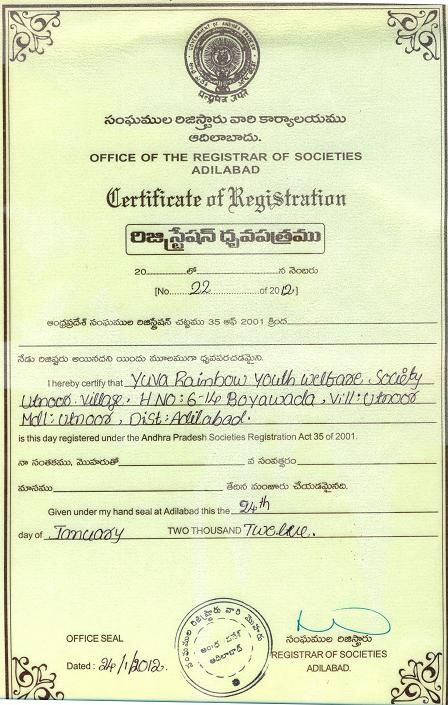 GOVERNMENT OF ANDHRA PRADESH
సంఘముల రిజిస్ట్రారు వారి కార్యాలయము
ఆదిలాబాదు.
OFFICE OF THE REGISTRAR OF SOCIETIES
ADILABAD
Certificate of Registration
రిజిస్ట్రేషన్ ధృవపత్రము
20..................లో..................న నెంబరు
[No.......22...........of 2012]
ఆంధ్రప్రదేశ్ సంఘముల రిజిస్ట్రేషన్ చట్టము 35 ఆఫ్ 2001 క్రింద
నేడు రిజిష్టరు అయినదని యిందు మూలముగా ధృవపరచడమైని.
I hereby certify that Yuva Rainbow Youth Welfare Society
Utnoor Village. H NO: 6-14 Boyawada, Vill: Utnoor
Mdl: Utnoor, Dist: Adilabad.
is this day registered under the Andhra Pradesh Societies Registration Act 35 of 2001.
నా సంతకము, మొహరుతో వ సంవత్సరం
మాసము తేదిన మంజూరు చేయడమైనది.
Given under my hand seal at Adilabad this the 24th
day of January TWO THOUSAND Twelve.
సంఘముల రిజిస్ట్రారు వారి మొహరు
ఆదిలాబాద్
OFFICE SEAL
సంఘముల రిజిస్ట్రారు
REGISTRAR OF SOCIETIES
Dated : 24/1/2012.
ADILABAD.